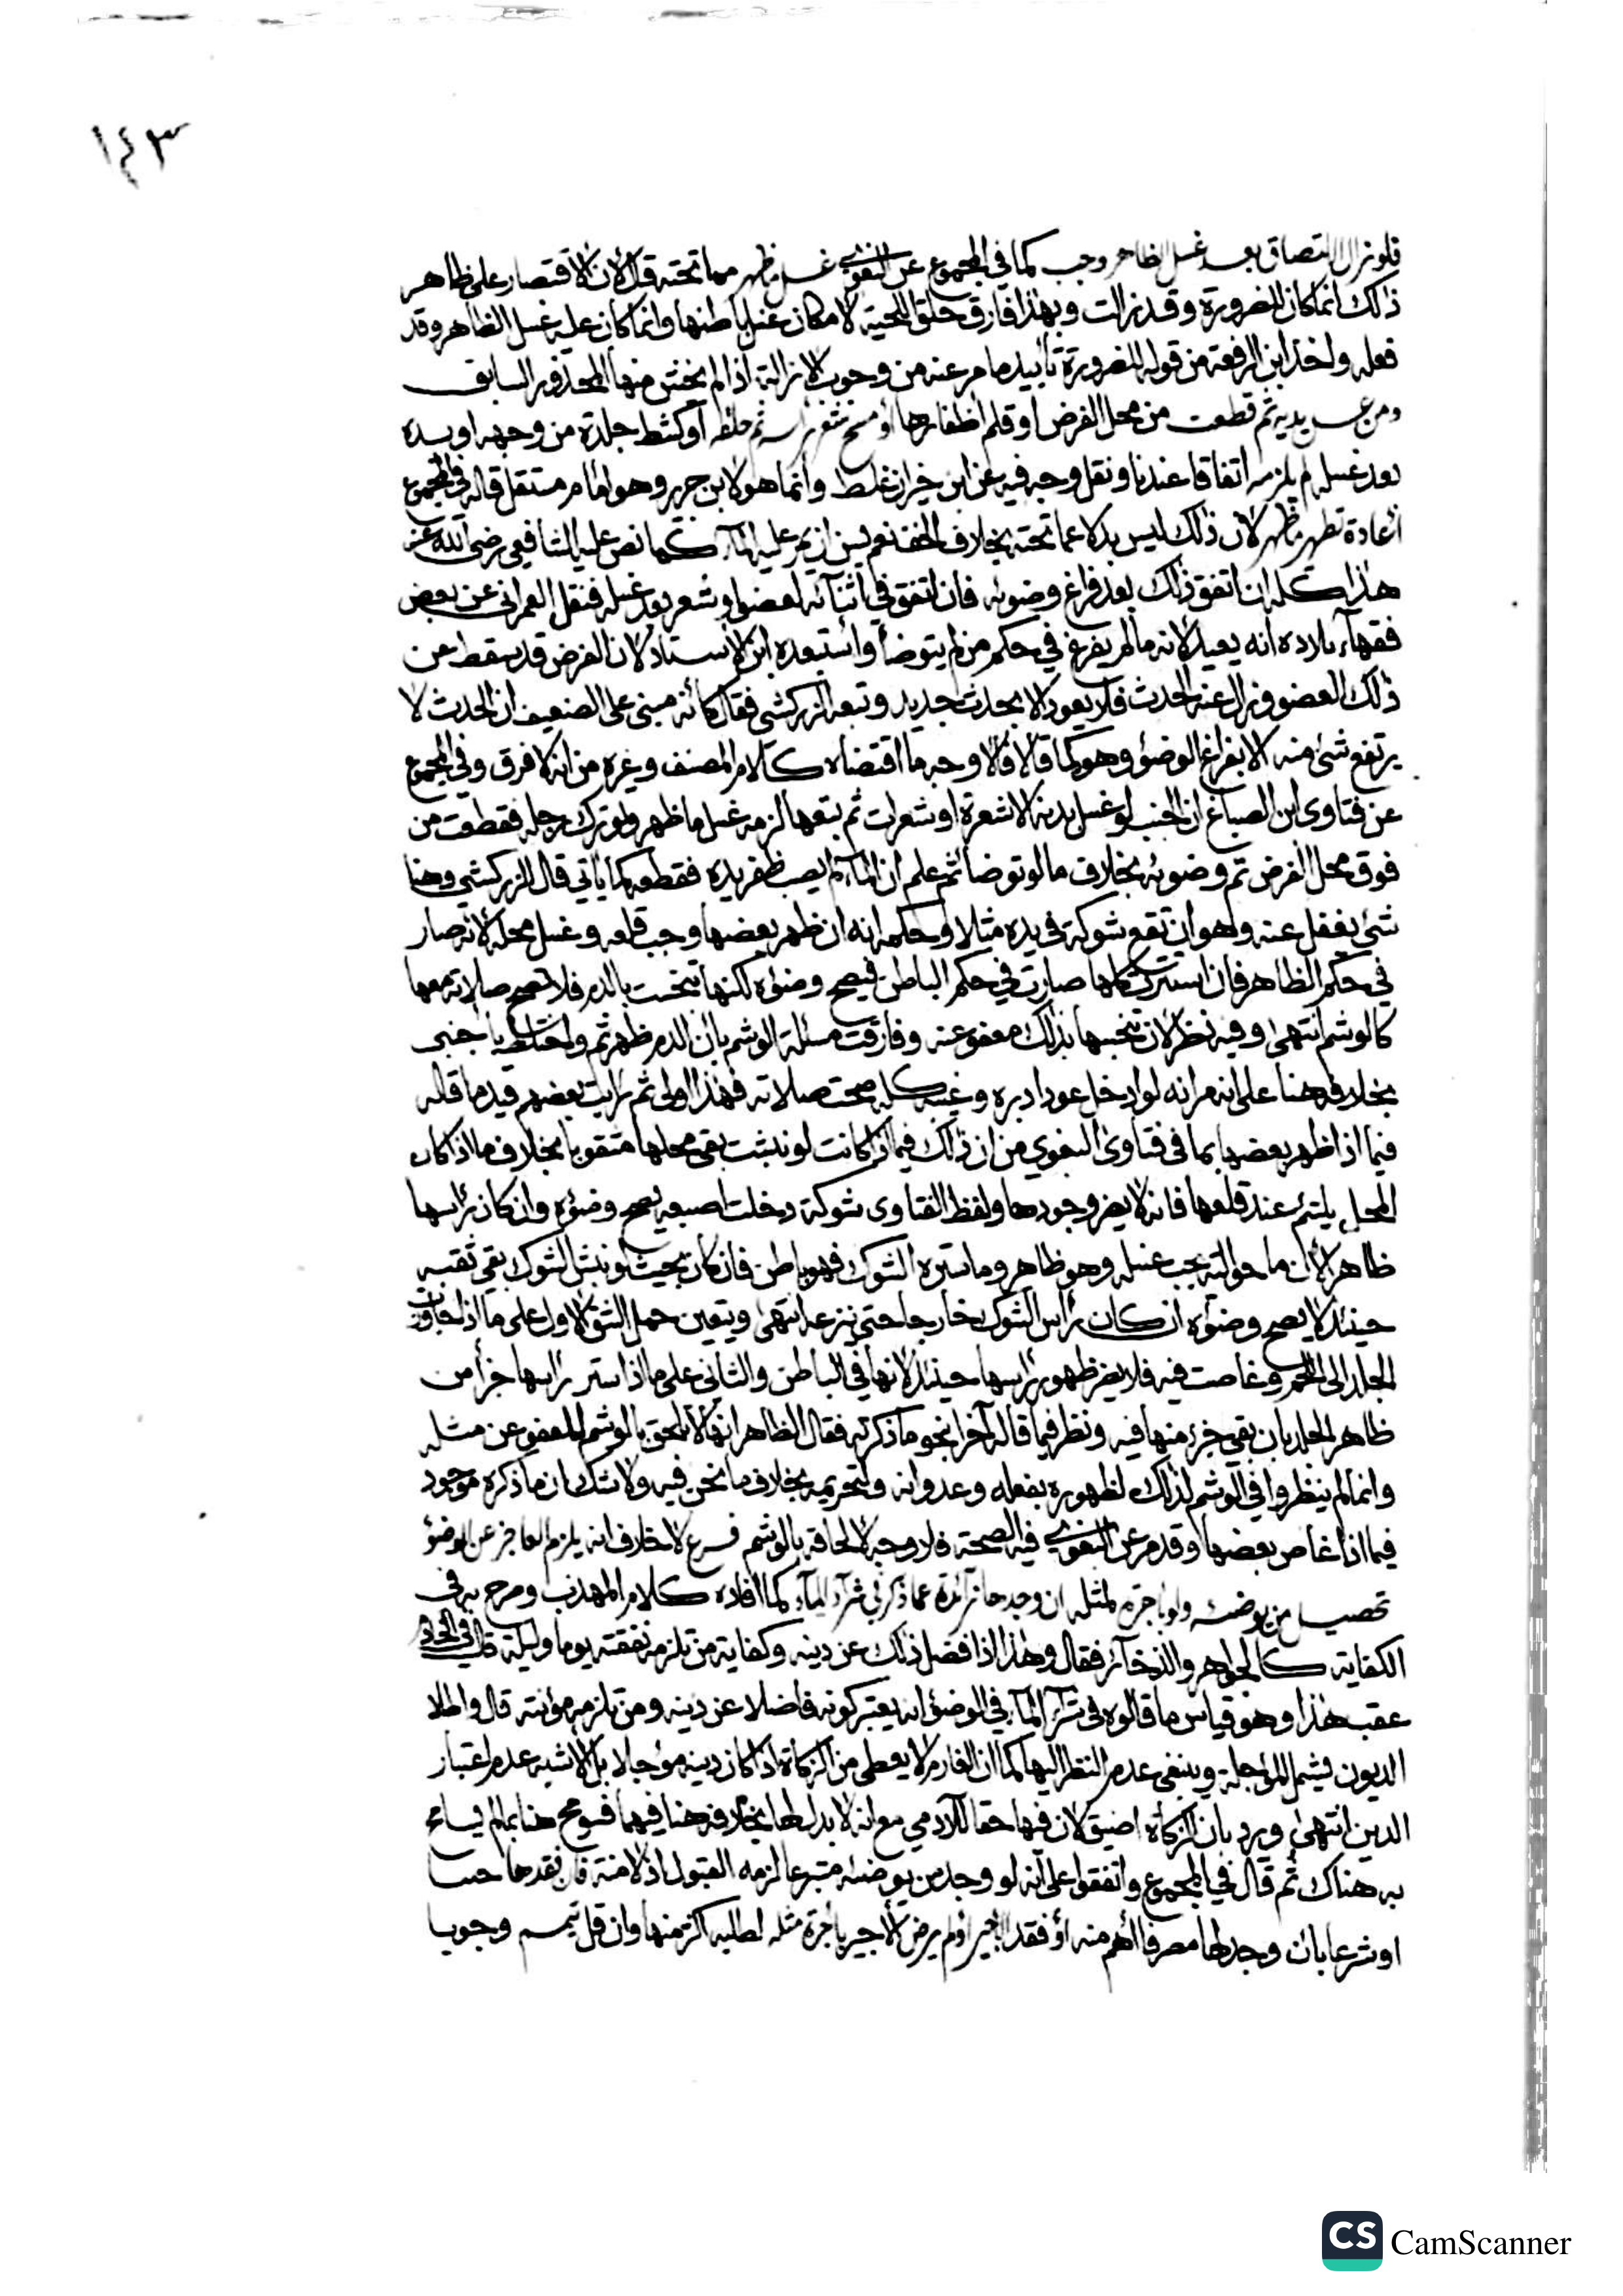 ١٤٣
فلو زال التصاق بعد غسل الظاهر وجب كما في المجموع عن البغوي غسل ما ظهر مما تحته قال لان الاقتصار على ظاهر
ذلك انما كان للضرورة وقد زالت وبهذا فارق حلق اللحية لامكان غسل باطنها وانما كان عليه غسل الظاهر وقد
فعله واخذ ابن الرفعة من قوله للضرورة تأييد ما مر عنه من وجوب الازالة اذا لم يخش منها المحذور السابق
ومن غسل يديه ثم قطعت من محل الفرض او قلم اظفارها أو مسح شعر راسه ثم حلقه أو كشط جلدة من وجهه او يده
بعد غسله لم يلزمه اتفاقا عندنا ونقل وجه فيه عن ابن خيران غلط وانما هو لابن جرير وهو امام مستقل قاله في المجموع
اعادة تطهير ما ظهر لان ذلك ليس بدلا عما تحته بخلاف الخف نعم يسن ان يمر عليه الماء كما نص عليه الشافعي رضي الله عنه
هذا كله ان اتفق ذلك بعد فراغ وضوئه فان اتفق في اثنائه لعضو او شعر بعد غسله فنقل العمراني عن بعض
فقهاء بلاده انه يعيد لانه ما لم يفرغ في حكم من لم يتوضأ واستبعده ابن الاستاذ لان الفرض قد سقط عن
ذلك العضو وزال عنه الحدث فلا يعود الا بحدث جديد وتبعه الزركشي فقال كأنه مبني على الضعيف ان الحدث لا
يرتفع شئ منه الا بفراغ الوضؤ وهو كما قالا فالاوجه ما اقتضاه كلام المصنف وغيره من انه لا فرق وفي المجموع
عن فتاوى ابن الصباغ ان الجنب لو غسل بدنه الا شعرة او شعرات ثم نتفها لزمه غسل ما ظهر ولو ترك رجله فقطعت من
فوق محل الفرض تم وضوئه بخلاف ما لو توضا ثم علم ان الماء لم يصب ظفر يده فقطعه كما يأتي قال الزركشي وهنا
شئ يغفل عنه وهو ان تقع شوكة في يده مثلا وحكمه انه ان ظهر بعضها وجب قلعه وغسل محله لانه صار
في حكم الظاهر فان استترت كلها صارت في حكم الباطن فيصح وضؤه لكنها تنجست بالدم فلا تصح صلاته معها
كالوشم انتهى وفيه نظر لان تنجسها بذلك معفو عنه وفارقت مسئلة الوشم بان الدم ظهر ثم واختلط باجنبي
بخلافه هنا على انه مر انه لو ادخل عودا دبره وغيبه كله صحت صلاته فهذا اولى ثم رايت بعضهم قيد ما قاله
فيما اذا ظهر بعضها بما في فتاوى البغوي من ان ذلك فيما اذا كانت لو نبشت بقي محلها مثقوبا بخلاف ما اذا كان
المحل يلتئم عند قلعها فانه لا يضر وجودها ولفظ الفتاوى شوكة دخلت اصبعه يصح وضؤه وان كان راسها
ظاهرا لان ما حواليه يجب غسله وهو ظاهر وما ستره الشوك فهو باطن فان كان بحيث لو نبش الشوك بقي ثقبه
حينئذ لا يصح وضؤه ان كان راس الشوك خارجا حتى ينزعه انتهى ويتعين حمل الشق الاول على ما اذا جاوزت
الجلد الى اللحم وغاصت فيه فلا يضر ظهور راسها حينئذ لانها في الباطن والثاني على ما اذا ستر راسها جزأ من
ظاهر الجلد بان بقي جزء منها فيه ونظر فيما قاله آخر بنحو ما ذكرته فقال الظاهر انها لا تلحق بالوشم للعفو عن مثله
وانما لم ينظروا في الوشم لذلك لظهوره بفعله وعدوانه ولتحريمه بخلاف ما نحن فيه ولا شك ان ما ذكره موجود
فيما اذا غاص بعضها وقد مر عن البغوي فيه الصحة فلا وجه لالحاقه بالوشم فرع لا خلاف انه يلزم العاجز عن الوضؤ
تحصيل من يوضئه ولو باجرة لمثله ان وجدها زائدة عما ذكر في شرآء المآء كما افاده كلام المهذب وصرح به في
الكفاية كالجواهر والذخائر فقال وهذا اذا فضل ذلك عن دينه وكفاية من تلزمه نفقته يوما وليلة قال في الخادم
عقب هذا وهو قياس ما قالوه في شرآء المآء في الوضؤ انه يعتبر كونه فاضلا عن دينه ومن تلزمه مؤنته قال واطلا
الديون فيشمل المؤجلة وينبغي عدم النظر اليها كما ان الغارم لا يعطى من الزكاة اذا كان دينه مؤجلا بل الاشبه عدم اعتبار
الدين انتهى ويرد بان الزكاة اضيق لان فيها حقا للآدمي مع انه لا بدل لها بخلافه هنا فيهما فسومح هنا بما لم يسامح
به هناك ثم قال في المجموع واتفقوا على انه لو وجد من يوضئه متبرعا لزمه القبول اذ لا منة فان فقدها حسا
او شرعا بان وجد لها مصرفا أهم منه أو فقد الاجير أو لم يرض الاجير باجرة مثله لطلبه اكثر منها وان قل تيمم وجوبا
CS CamScanner